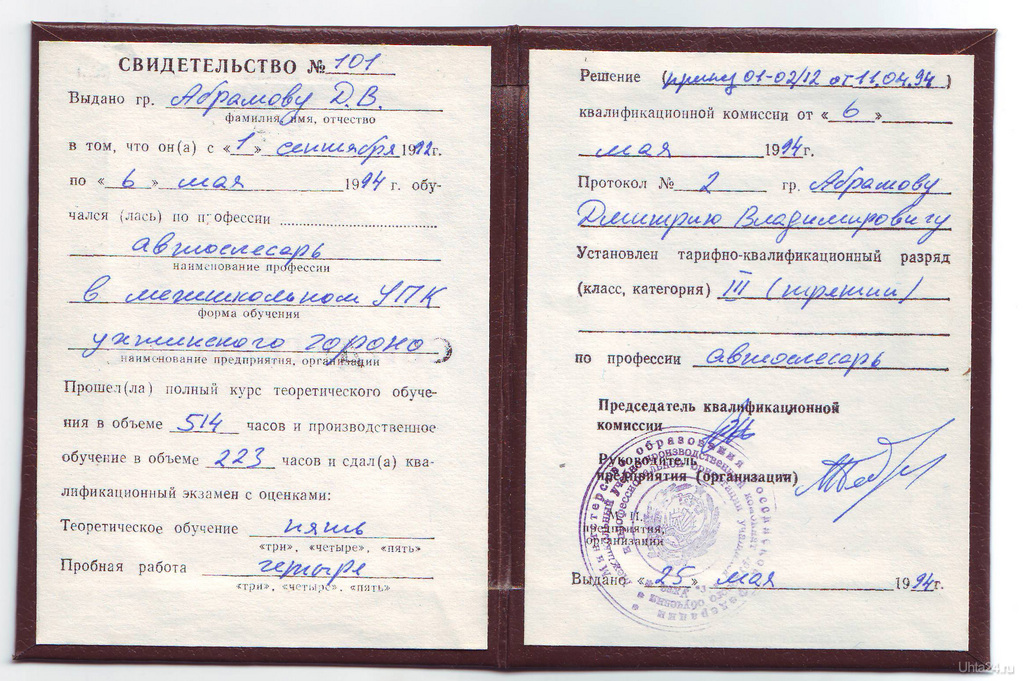 СВИДЕТЕЛЬСТВО № 101
Выдано гр. Абрамову Д.В.
фамилия, имя, отчество
в том, что он(а) с «1» сентября 1992г.
по «6» мая 1994 г. обу-
чался (лась) по профессии
автослесарь
наименование профессии
в межшкольном УПК
форма обучения
ухтинского гороно
наименование предприятия, организации
Прошел(ла) полный курс теоретического обуче-
ния в объеме 514 часов и производственное
обучение в объеме 223 часов и сдал(а) ква-
лификационный экзамен с оценками:
Теоретическое обучение пять
«три», «четыре», «пять»
Пробная работа четыре
«три», «четыре», «пять»
Решение (принц 01-02/12 от 11.04.94)
квалификационной комиссии от «6»
мая 1994г.
Протокол № 2 гр. Абрамову
Дмитрию Владимировичу
Установлен тарифно-квалификационный разряд
(класс, категория) III (третий)
по профессии автослесарь
Председатель квалификационной
комиссии
Руководитель
предприятия (организации)
М. П.
предприятия,
организации
Выдано «25» мая 1994г.
Uhta24.ru